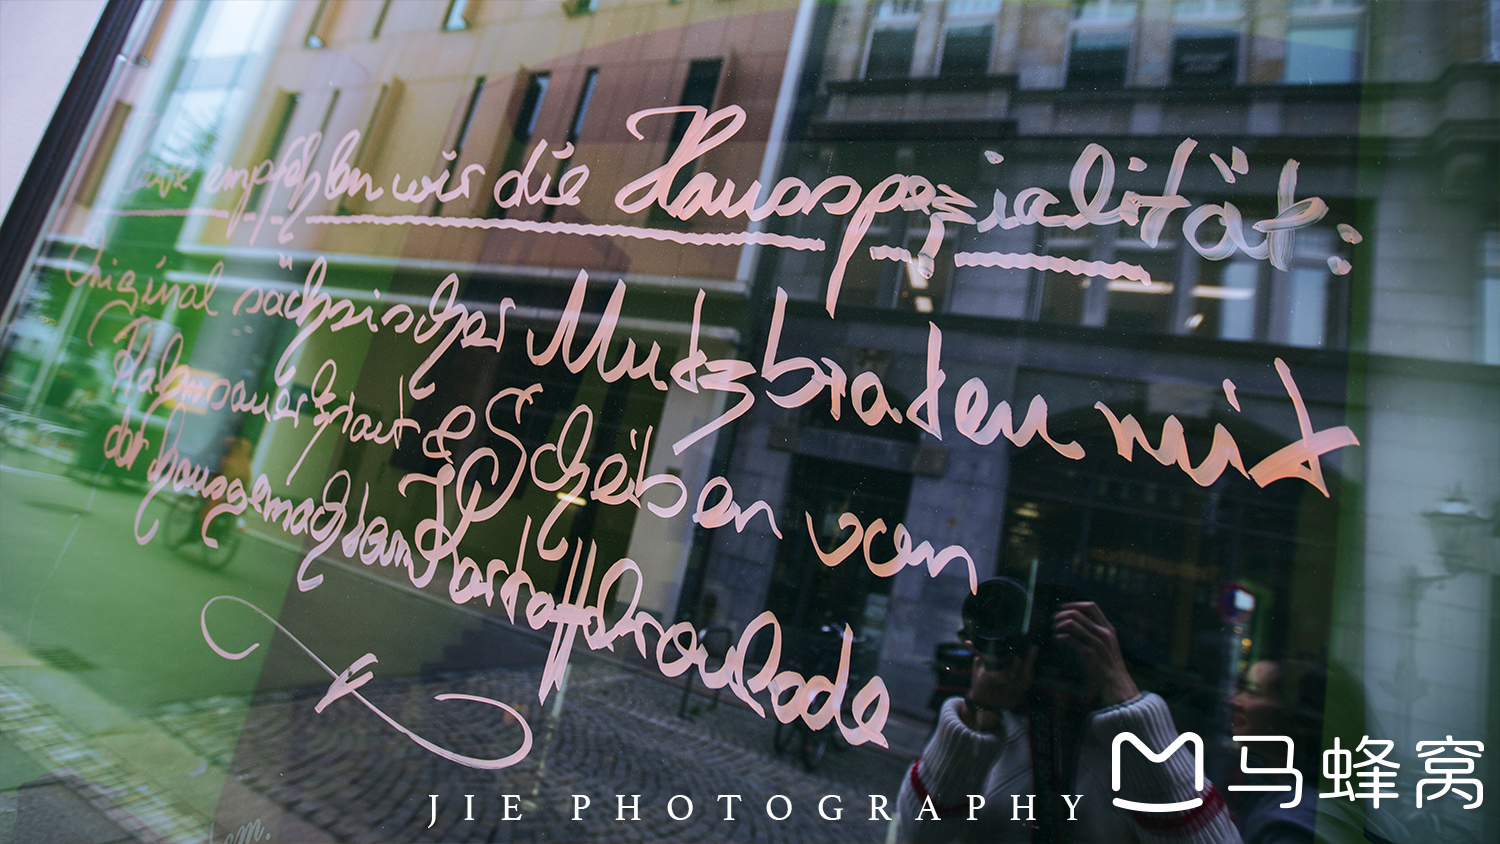 Heute empfehlen wir die Hausspezialität:
Original sächsischer Mutzbraten mit
Rahmsauerkraut & Scheiben von
der hausgemachten Kartoffelroulade
JIE PHOTOGRAPHY
马蜂窝